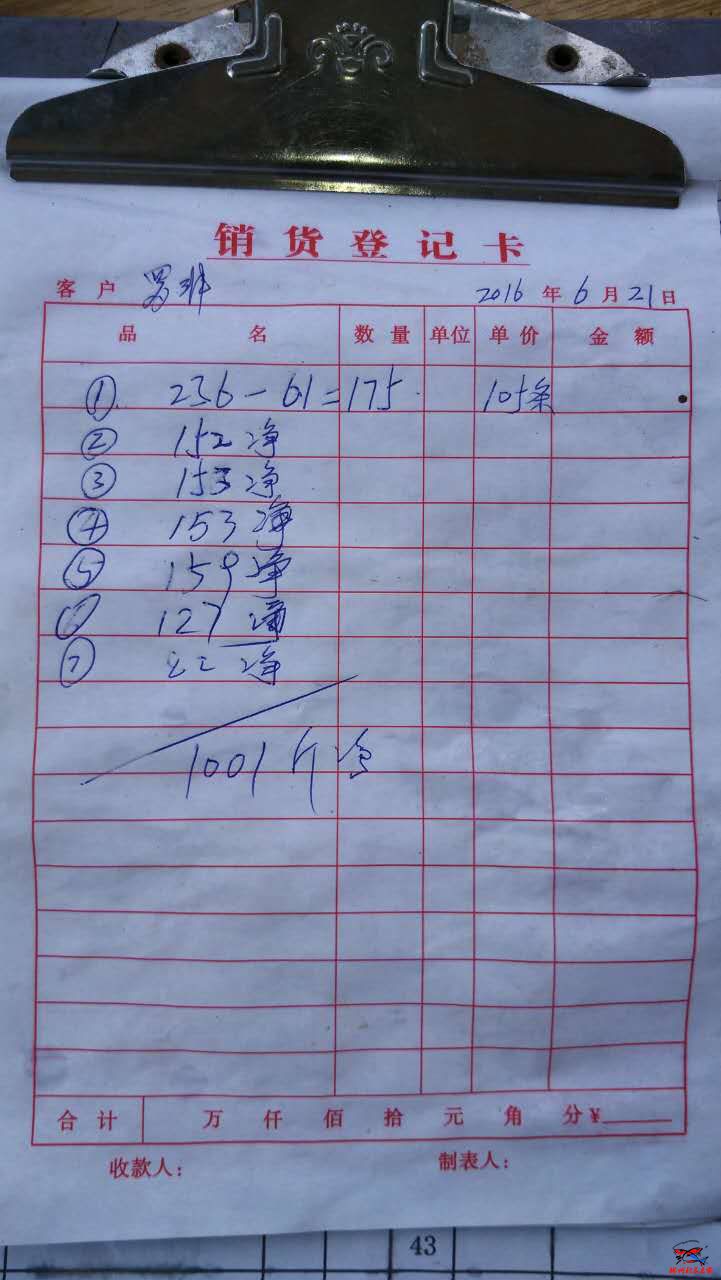 销货登记卡
客户 罗非 2016年6月21日
品名 数量 单位 单价 金额
① 236-61=175 105条
② 152净
③ 153净
④ 153净
⑤ 159净
⑥ 127净
⑦ 82净
1001斤净
合计 万 仟 佰 拾 元 角 分¥
收款人： 制表人：
43